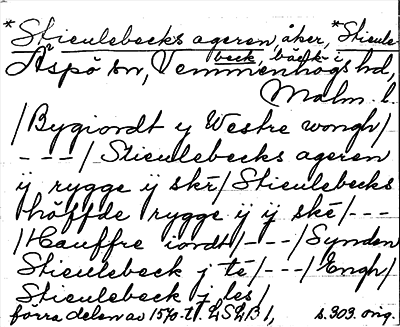 *Stieulebecks ageren, åker, *Stieule-
beck, bäck i
Äspö sn, Vemmenhögs hd,
Malm. l.
/Bygiordt y Westre wongh/
---/ Stieulebecks ageren
ij rygge ij skē/ Stieulebecks
höffde rygge ij ij skē/---
/Hauffre iordt/---/Synden
Stieulebeck j tē/---/Engh/
Stieulebeck j les/
förra delen av 1570-t. LSLB 1, s. 303. orig.